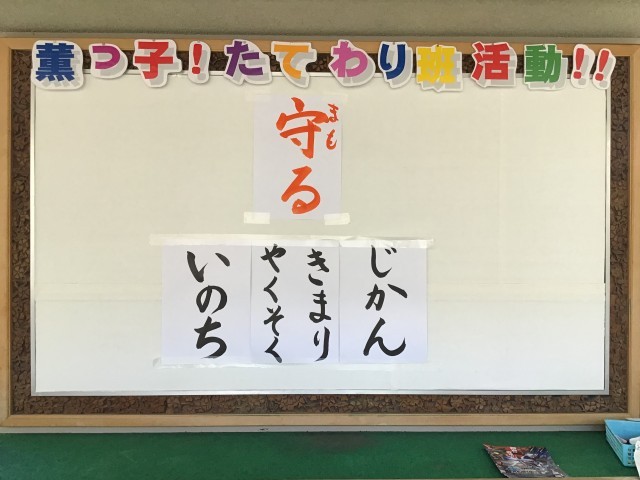 薫っ子！たてわり班活動！！
守る
まも
じかん
きまり
やくそく
いのち